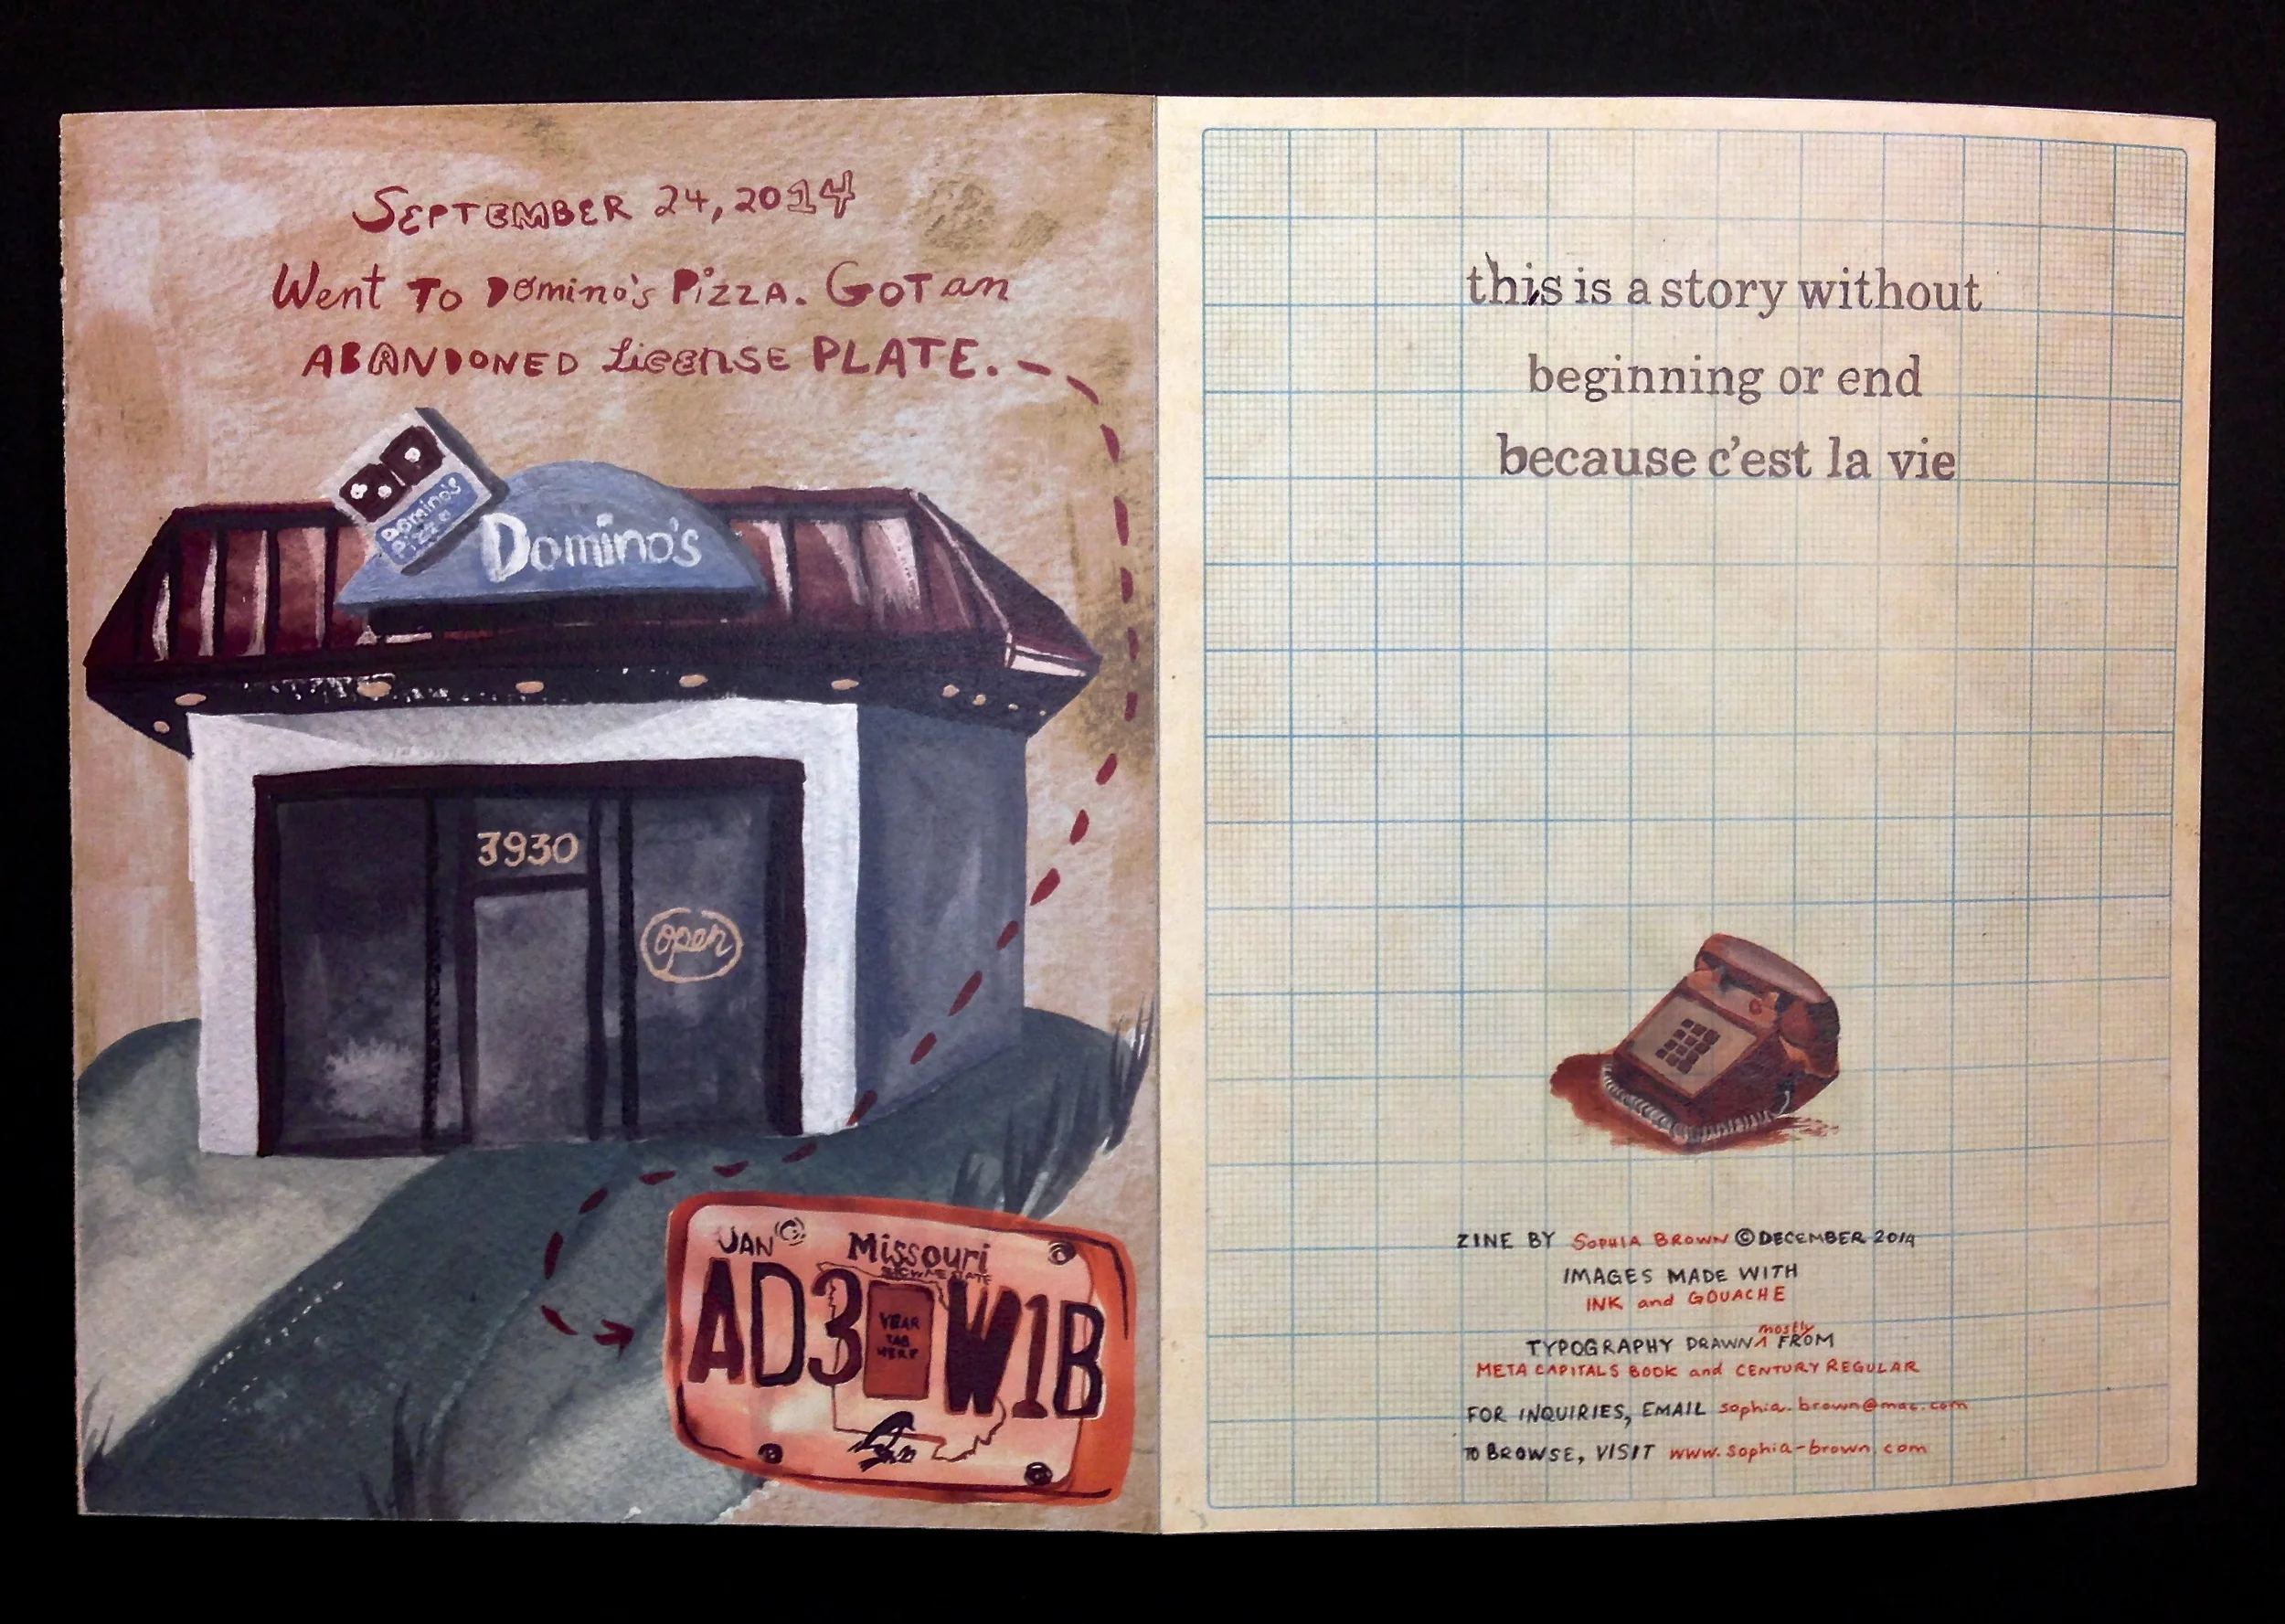 SEPTEMBER 24, 2014
Went TO Domino's PizzA. GOT an
ABANDONED License PLATE.
Domino's
Pizza
Domino's
3930
open
JAN
Missouri
SHOW ME STATE
AD3 W1B
YEAR
TAB
HERE
this is a story without
beginning or end
because c'est la vie
ZINE BY SOPHIA BROWN © DECEMBER 2014
IMAGES MADE WITH
INK and GOUACHE
mostly
TYPOGRAPHY DRAWN FROM
META CAPITALS BOOK and CENTURY REGULAR
FOR INQUIRIES, EMAIL sophia.brown@mac.com
TO BROWSE, VISIT www.sophia-brown.com